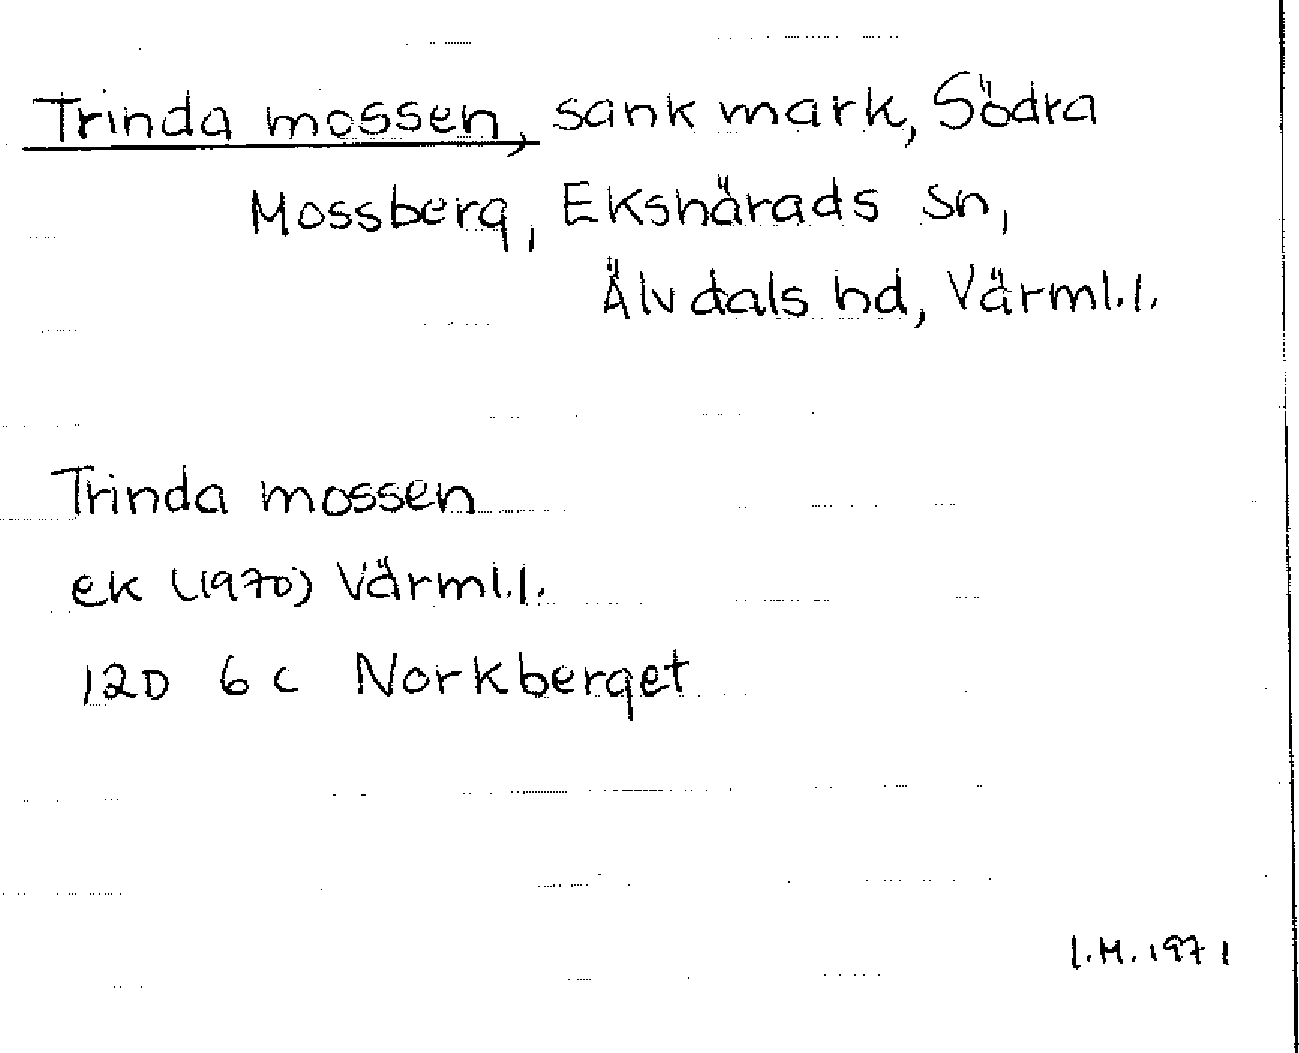 Trinda mossen, sank mark, Södra
Mossberg, Ekshärads sn,
Älvdals hd, Värml.l.
Trinda mossen
ek (1970) Värml.l.
12D 6c Norkberget
I.M. 1971